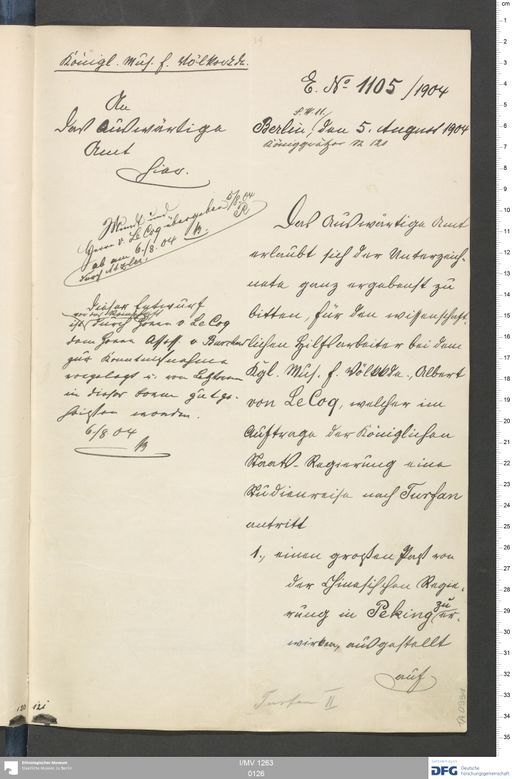 Königl. Mus. f. Völkerkde.
E. No 1105/1904
An
das Auswärtige
Amt
hier.
S.W. 11
Berlin, den 5. August 1904
Königgrätzer Str. 120
Mundt und
Herrn v. Le Coq übergeben 5/8 04
ab am 6/8. 04
durch
Dieser Entwurf
ist durch Herrn v LeCoq
dem Herrn
zur Kenntnisnahme
vorgelegt u. von Letzterem
in dieser Form gutge-
heißen worden.
6/8 04
Das Auswärtige Amt
erlaubt sich der Unterzeich-
nete ganz ergebenst zu
bitten, für den wissenschaft-
lichen Hilfsarbeiter bei dem
Kgl. Mus. f. Völkkde., Albert
von LeCoq, welcher im
Auftrage der Königlichen
Staats-Regierung eine
Studienreise nach Turfan
antritt
1., einen großen Paß von
der Chinesischen Regie-
rung in Peking zu er-
wirken, ausgestellt
auf
Turfan II
120 121
Ethnologisches Museum
Staatliche Museen zu Berlin
I/MV 1263
0126
DFG Deutsche
Forschungsgemeinschaft